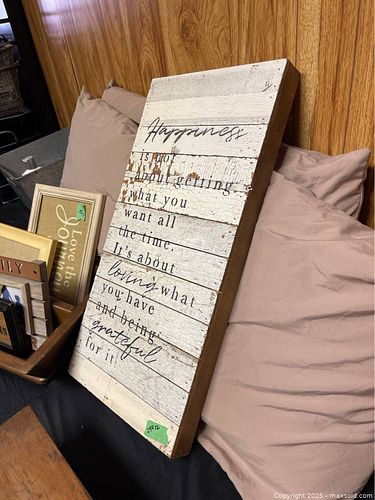 Happiness
is not
about getting
what you
want all
the time.
It's about
loving what
you have
and being
grateful
for it!
Love the
Journey
ILY
Copyright 2025 - maxsold.com